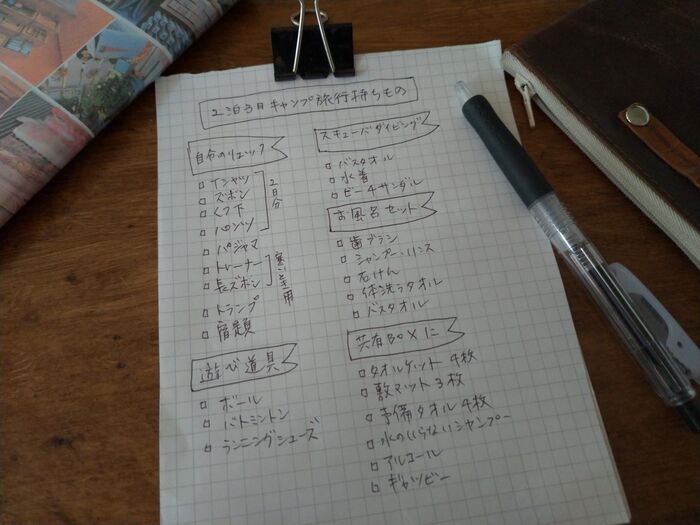 2泊3日キャンプ旅行持ちもの
自分のリュック
□ Tシャツ
□ ズボン
□ くつ下
□ パンツ
2日分
□ パジャマ
□ トレーナー
□ 長ズボン
寒いとき用
□ トランプ
□ 宿題
遊び道具
□ ボール
□ バトミントン
□ ランニングシューズ
スキューバダイビング
□ バスタオル
□ 水着
□ ビーチサンダル
お風呂セット
□ 歯ブラシ
□ シャンプー・リンス
□ 石けん
□ 体洗うタオル
□ バスタオル
共有BOXに
□ タオルケット 4枚
□ 敷マット 3枚
□ 予備タオル 4枚
□ 水のいらないシャンプー
□ アルコール
□ ギャツビー